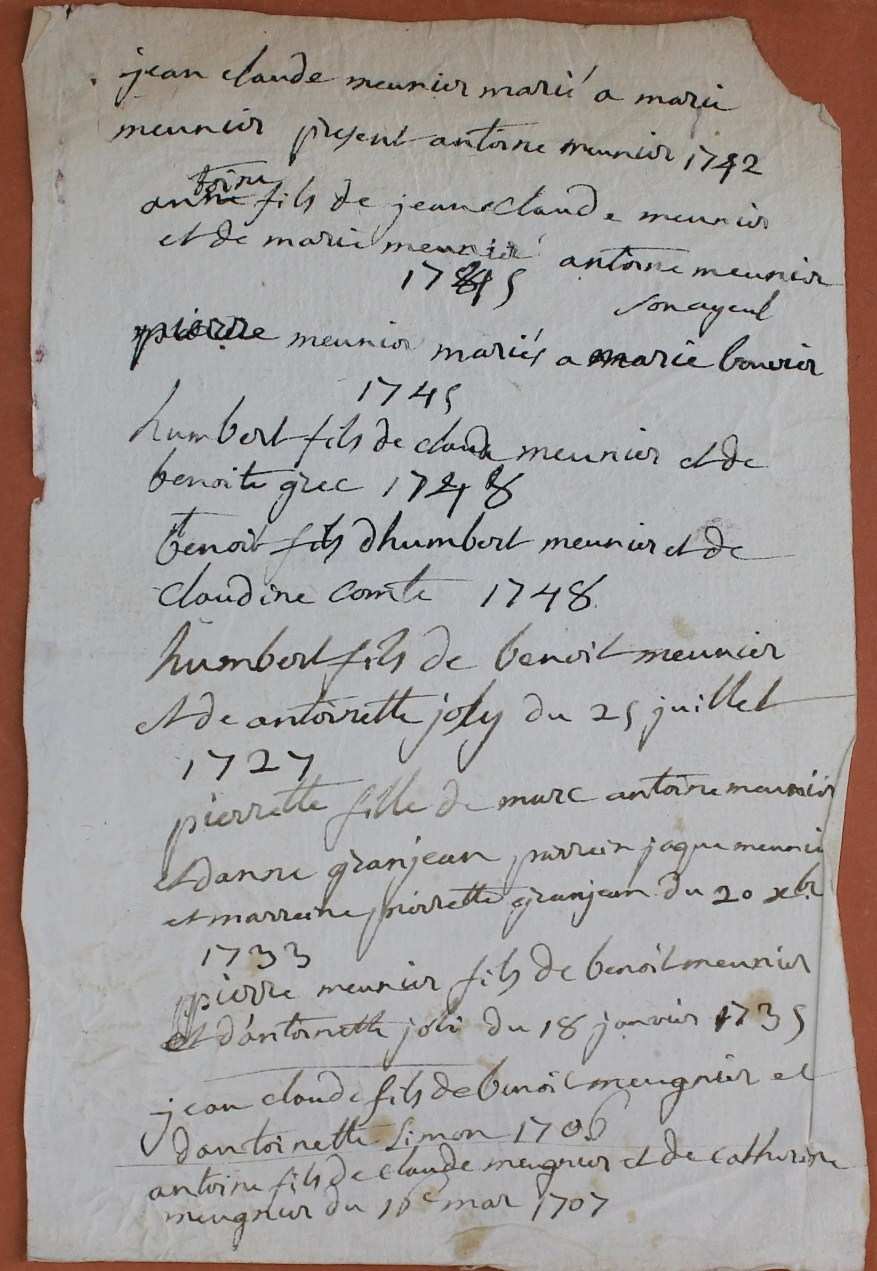 jean claude meunier marié a marie
meunier present antoine meunier 1742
antoine fils de jean claude meunier
et de marie meunier antoine meunier
1745 son ayeul
pierre meunier mariés a marie bouvier
1745
humbert fils de claude meunier et de
benoite grec 1748
benoit fils dhumbert meunier et de
claudine comte 1748
humbert fils de benoit meunier
et de antoinette joly du 25 juillet
1727
pierrette fille de marc antoine meunier
et danne granjean parrein jaque meunie
et marreine pierrette granjean du 20 xbr
1733
pierre meunier fils de benoit meunier
et d'antoinette joli du 18 janvier 1735
jean claude fils de benoit meugnier et
dantoinette Simon 1706
antoine fils de claude meugnier et de catherine
meugnier du mar 1707